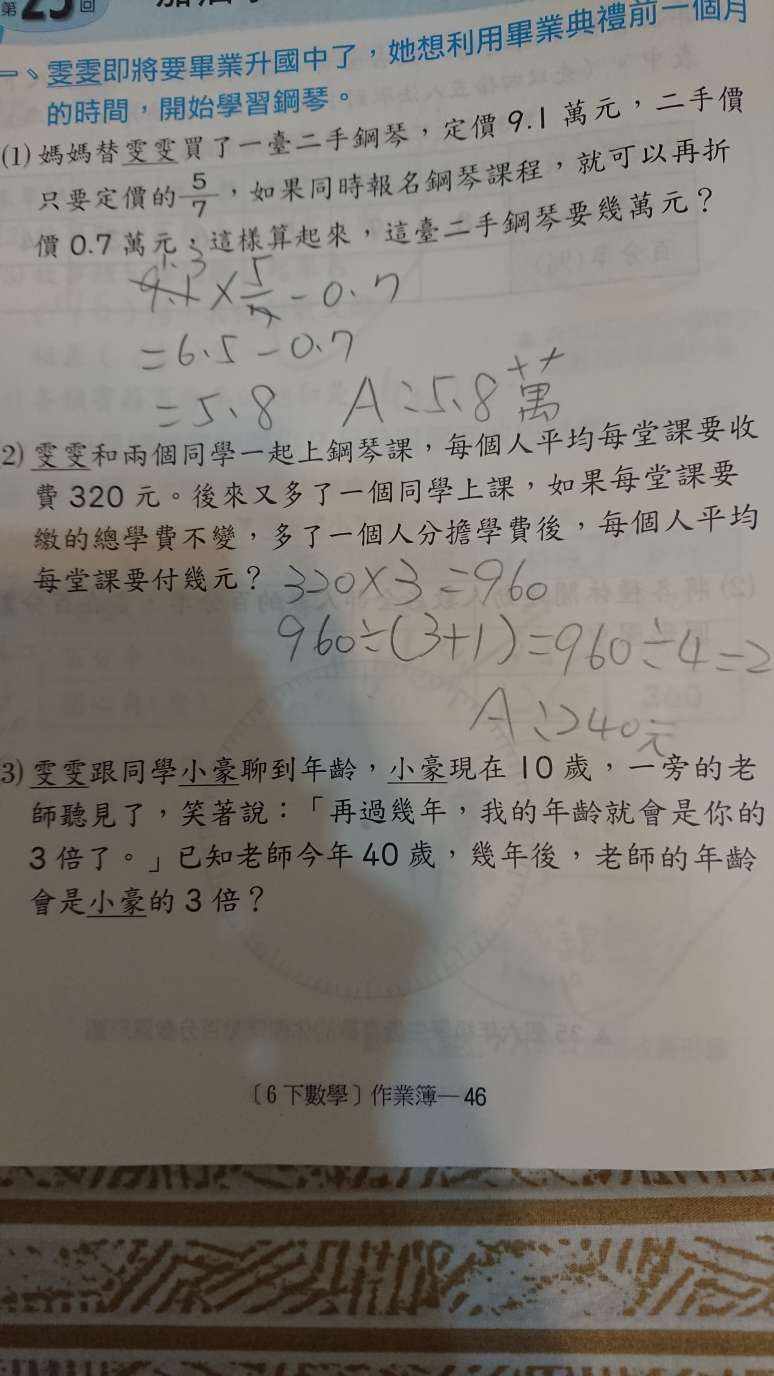 第25回
一、雯雯即將要畢業升國中了，她想利用畢業典禮前一個月
的時間，開始學習鋼琴。
(1) 媽媽替雯雯買了一臺二手鋼琴，定價 9.1 萬元，二手價
只要定價的 5/7，如果同時報名鋼琴課程，就可以再折
價 0.7 萬元，這樣算起來，這臺二手鋼琴要幾萬元？
1.3
9.1×5/7-0.7
=6.5-0.7
=5.8 A：5.8萬
2) 雯雯和兩個同學一起上鋼琴課，每個人平均每堂課要收
費 320 元。後來又多了一個同學上課，如果每堂課要
繳的總學費不變，多了一個人分擔學費後，每個人平均
每堂課要付幾元？ 320×3=960
960÷(3+1)=960÷4=2
A：240元
3) 雯雯跟同學小豪聊到年齡，小豪現在 10 歲，一旁的老
師聽見了，笑著說：「再過幾年，我的年齡就會是你的
3 倍了。」已知老師今年 40 歲，幾年後，老師的年齡
會是小豪的 3 倍？
〔6 下數學〕作業簿—46